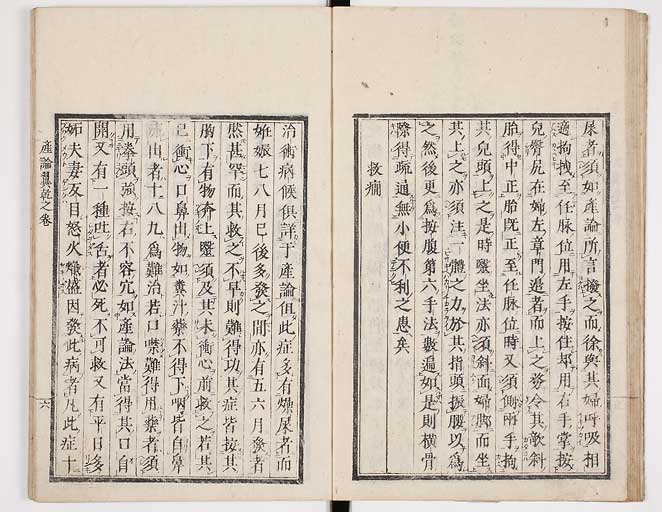 尿者須如產論所言擡之而徐與其婦呼吸相
適拘拽至任脉位用左手按住却用右手掌按
兒臀尻在婦左章門邉者而上之務令其欹斜
胎得中正胎既正至任脉位時又須側兩手拘
共兒頭上之是時瞖坐法亦須斜面婦脚而坐
共上之亦須注一體之力於其指頭振腰以為
之然後更為按腹第六手法數遍如是則橫骨
際得疏通無小便不利之患矣
救癇
治術病候俱詳于產論但此症多有燥屎者而
妊娠七八月已後多發之間亦有五六月發者
然甚罕而其救之不早則難得功其症皆按其
胸下有物奔上瞖須及其未衝心前救之若其
已衝心口鼻出物如糞汁藥不得下咽皆自鼻
出者十八九為難治若口噤難得用藥者須
用拳頭強按右不容穴如產論法當得其口自
開又有一種吐舌者必死不可救又有平日多
姉夫妻友目怒火熾盛因發此病者凡此症十
產論翼乾之卷
六